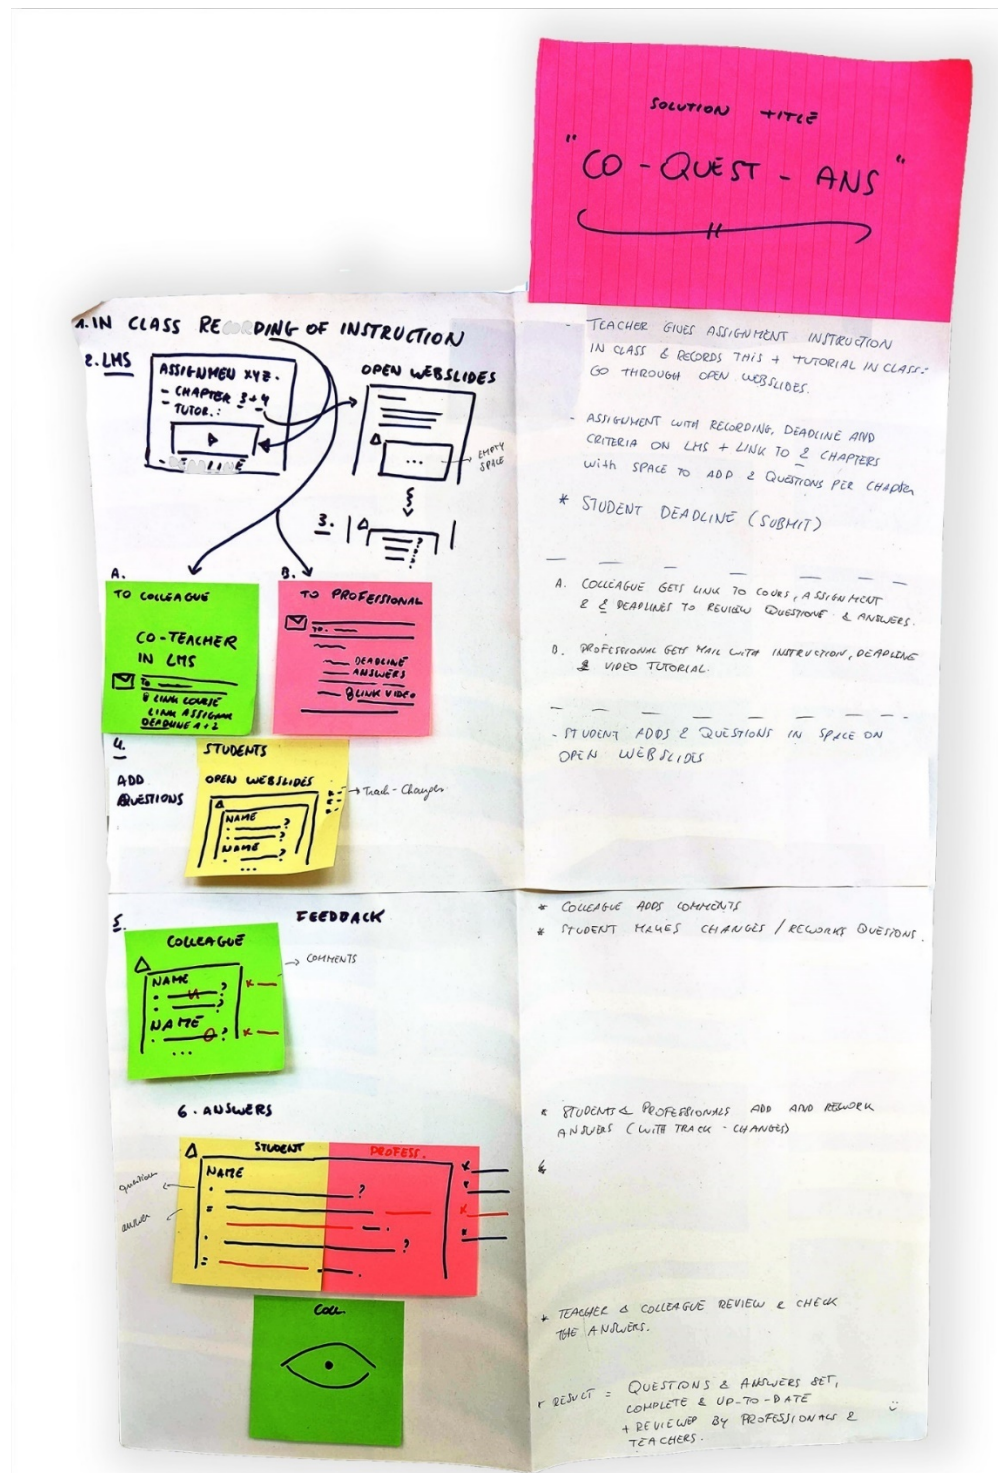 SOLUTION TITLE
"CO - QUEST - ANS"
1. IN CLASS RECORDING OF INSTRUCTION
2. LMS
ASSIGNMEN XYZ.
- CHAPTER 3+4
- TUTOR.:
- DEADLINE
OPEN WEBSLIDES
...
EMPTY
SPACE
3.
A.
TO COLLEAGUE
CO-TEACHER
IN LMS
TO
& LINK COURSE
LINK ASSIGNM
DEADLINE 1+2
B.
TO PROFESSIONAL
TO.
DEADLINE
ANSWERS
& LINK VIDEO
4.
ADD
QUESTIONS
STUDENTS
OPEN WEBSLIDES
NAME
?
?
NAME
?
...
Track-Changes
5.
FEEDBACK
COLLEAGUE
NAME
?
?
NAME
?
...
COMMENTS
6. ANSWERS
STUDENT PROFESS.
NAME
?
?
questions
answer
COLL.
- TEACHER GIVES ASSIGNMENT INSTRUCTION
IN CLASS & RECORDS THIS + TUTORIAL IN CLASS:
GO THROUGH OPEN WEBSLIDES.
- ASSIGNMENT WITH RECORDING, DEADLINE AND
CRITERIA ON LMS + LINK TO 2 CHAPTERS
with SPACE TO ADD 2 QUESTIONS PER CHAPTER
* STUDENT DEADLINE (SUBMIT)
A. COLLEAGUE GETS LINK TO COURS, ASSIGNMENT
& 2 DEADLINES TO REVIEW QUESTIONS & ANSWERS.
B. PROFESSIONAL GETS MAIL WITH INSTRUCTION, DEADLINE
& VIDEO TUTORIAL.
- STUDENT ADDS 2 QUESTIONS IN SPACE ON
OPEN WEBSLIDES
* COLLEAGUE ADDS COMMENTS
* STUDENT MAKES CHANGES / REWORKS QUESTIONS.
* STUDENTS & PROFESSIONALS ADD AND REWORK
ANSWERS (WITH TRACK - CHANGES)
* TEACHER & COLLEAGUE REVIEW & CHECK
THE ANSWERS.
* RESULT = QUESTIONS & ANSWERS SET,
COMPLETE & UP-TO-DATE
+ REVIEWED BY PROFESSIONALS &
TEACHERS.